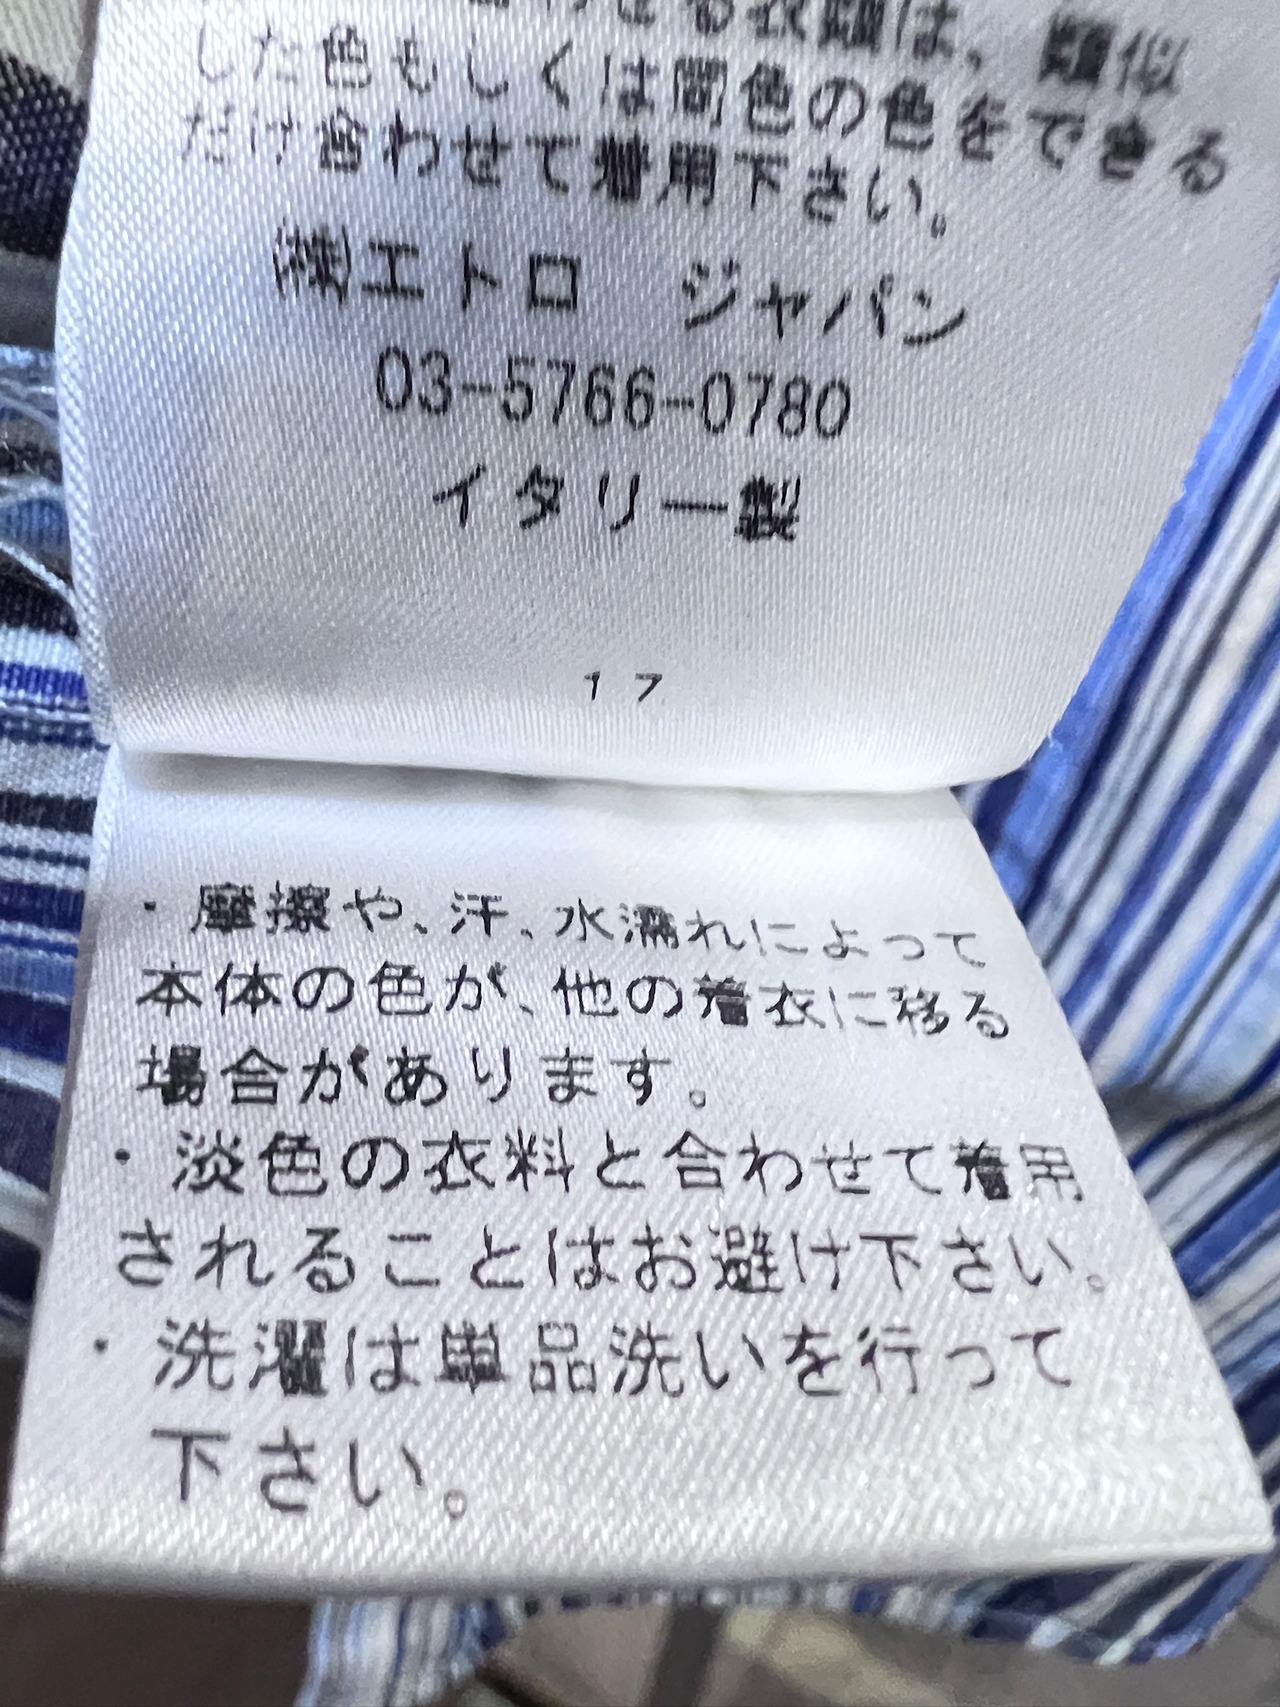 わせる衣類は、類似
した色もしくは同色の色をできる
だけ合わせて着用下さい。
㈱エトロ ジャパン
03-5766-0780
イタリー製
17
・摩擦や、汗、水濡れによって
本体の色が、他の着衣に移る
場合があります。
・淡色の衣料と合わせて着用
されることはお避け下さい。
・洗濯は単品洗いを行って
下さい。